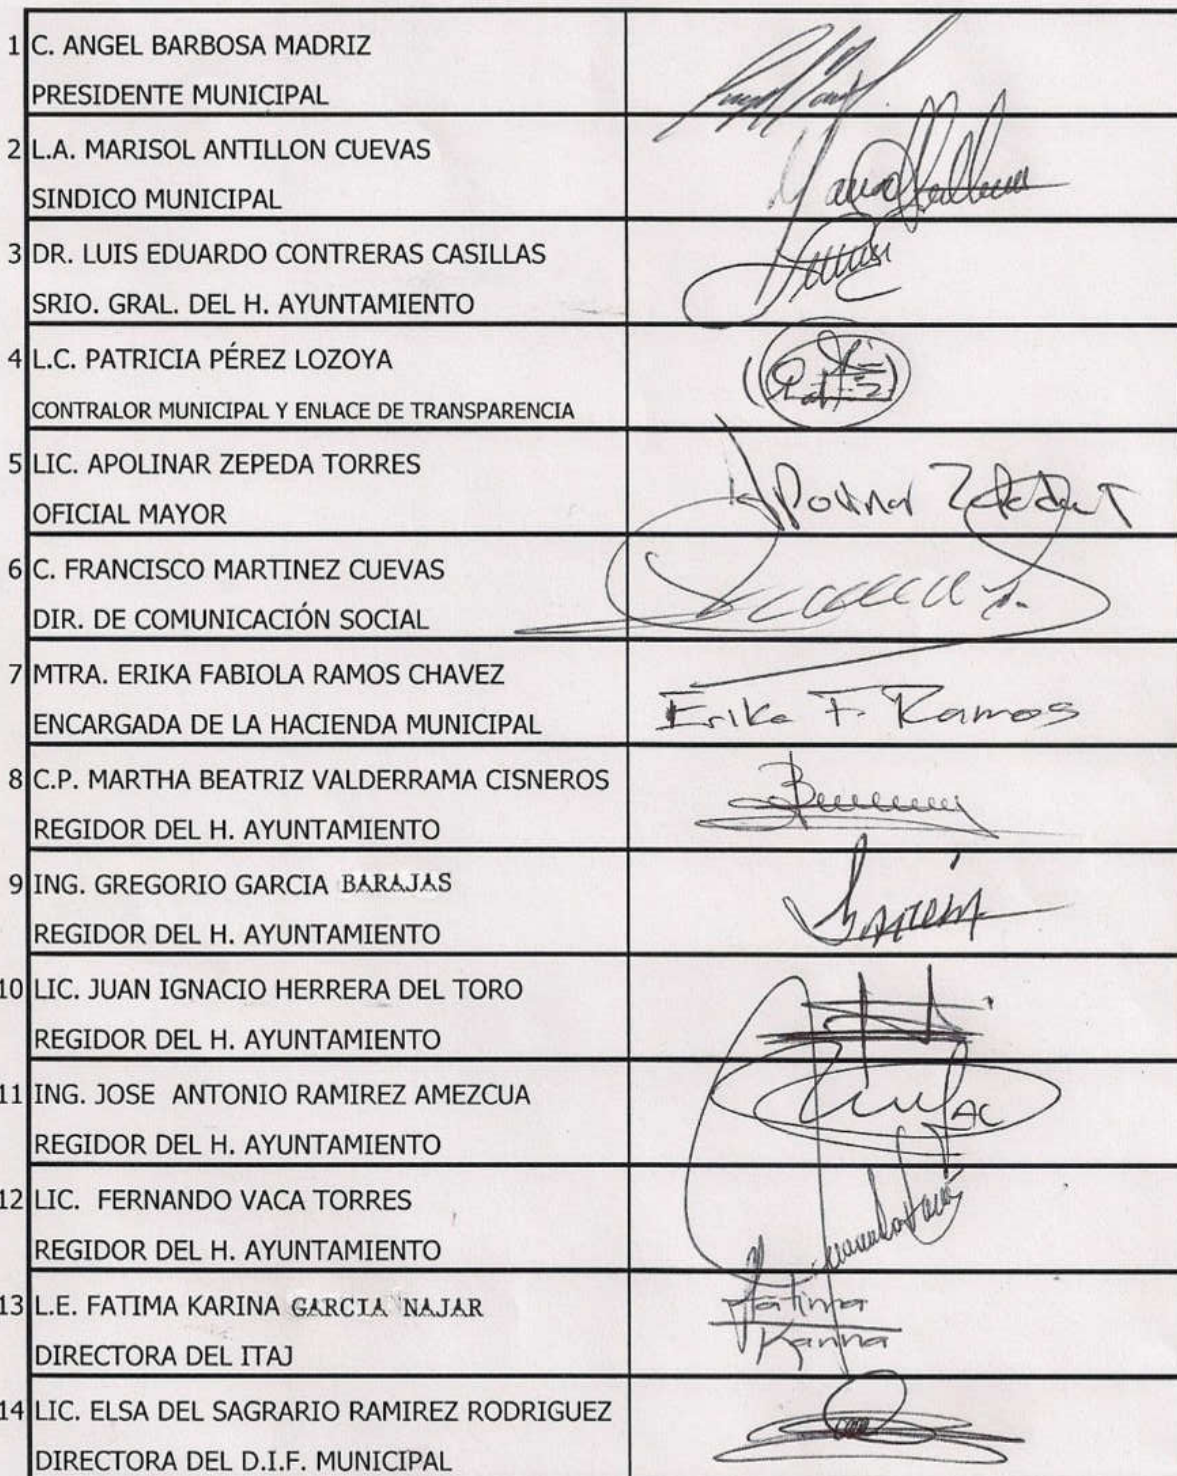 1 C. ANGEL BARBOSA MADRIZ
PRESIDENTE MUNICIPAL
2 L.A. MARISOL ANTILLON CUEVAS
SINDICO MUNICIPAL
3 DR. LUIS EDUARDO CONTRERAS CASILLAS
SRIO. GRAL. DEL H. AYUNTAMIENTO
4 L.C. PATRICIA PÉREZ LOZOYA
CONTRALOR MUNICIPAL Y ENLACE DE TRANSPARENCIA
5 LIC. APOLINAR ZEPEDA TORRES
Apolinar Zepeda T
OFICIAL MAYOR
6 C. FRANCISCO MARTINEZ CUEVAS
DIR. DE COMUNICACIÓN SOCIAL
7 MTRA. ERIKA FABIOLA RAMOS CHAVEZ
Erika F. Ramos
ENCARGADA DE LA HACIENDA MUNICIPAL
8 C.P. MARTHA BEATRIZ VALDERRAMA CISNEROS
REGIDOR DEL H. AYUNTAMIENTO
9 ING. GREGORIO GARCIA BARAJAS
REGIDOR DEL H. AYUNTAMIENTO
10 LIC. JUAN IGNACIO HERRERA DEL TORO
REGIDOR DEL H. AYUNTAMIENTO
11 ING. JOSE ANTONIO RAMIREZ AMEZCUA
REGIDOR DEL H. AYUNTAMIENTO
12 LIC. FERNANDO VACA TORRES
REGIDOR DEL H. AYUNTAMIENTO
13 L.E. FATIMA KARINA GARCIA NAJAR
Fatima
Karina
DIRECTORA DEL ITAJ
14 LIC. ELSA DEL SAGRARIO RAMIREZ RODRIGUEZ
DIRECTORA DEL D.I.F. MUNICIPAL